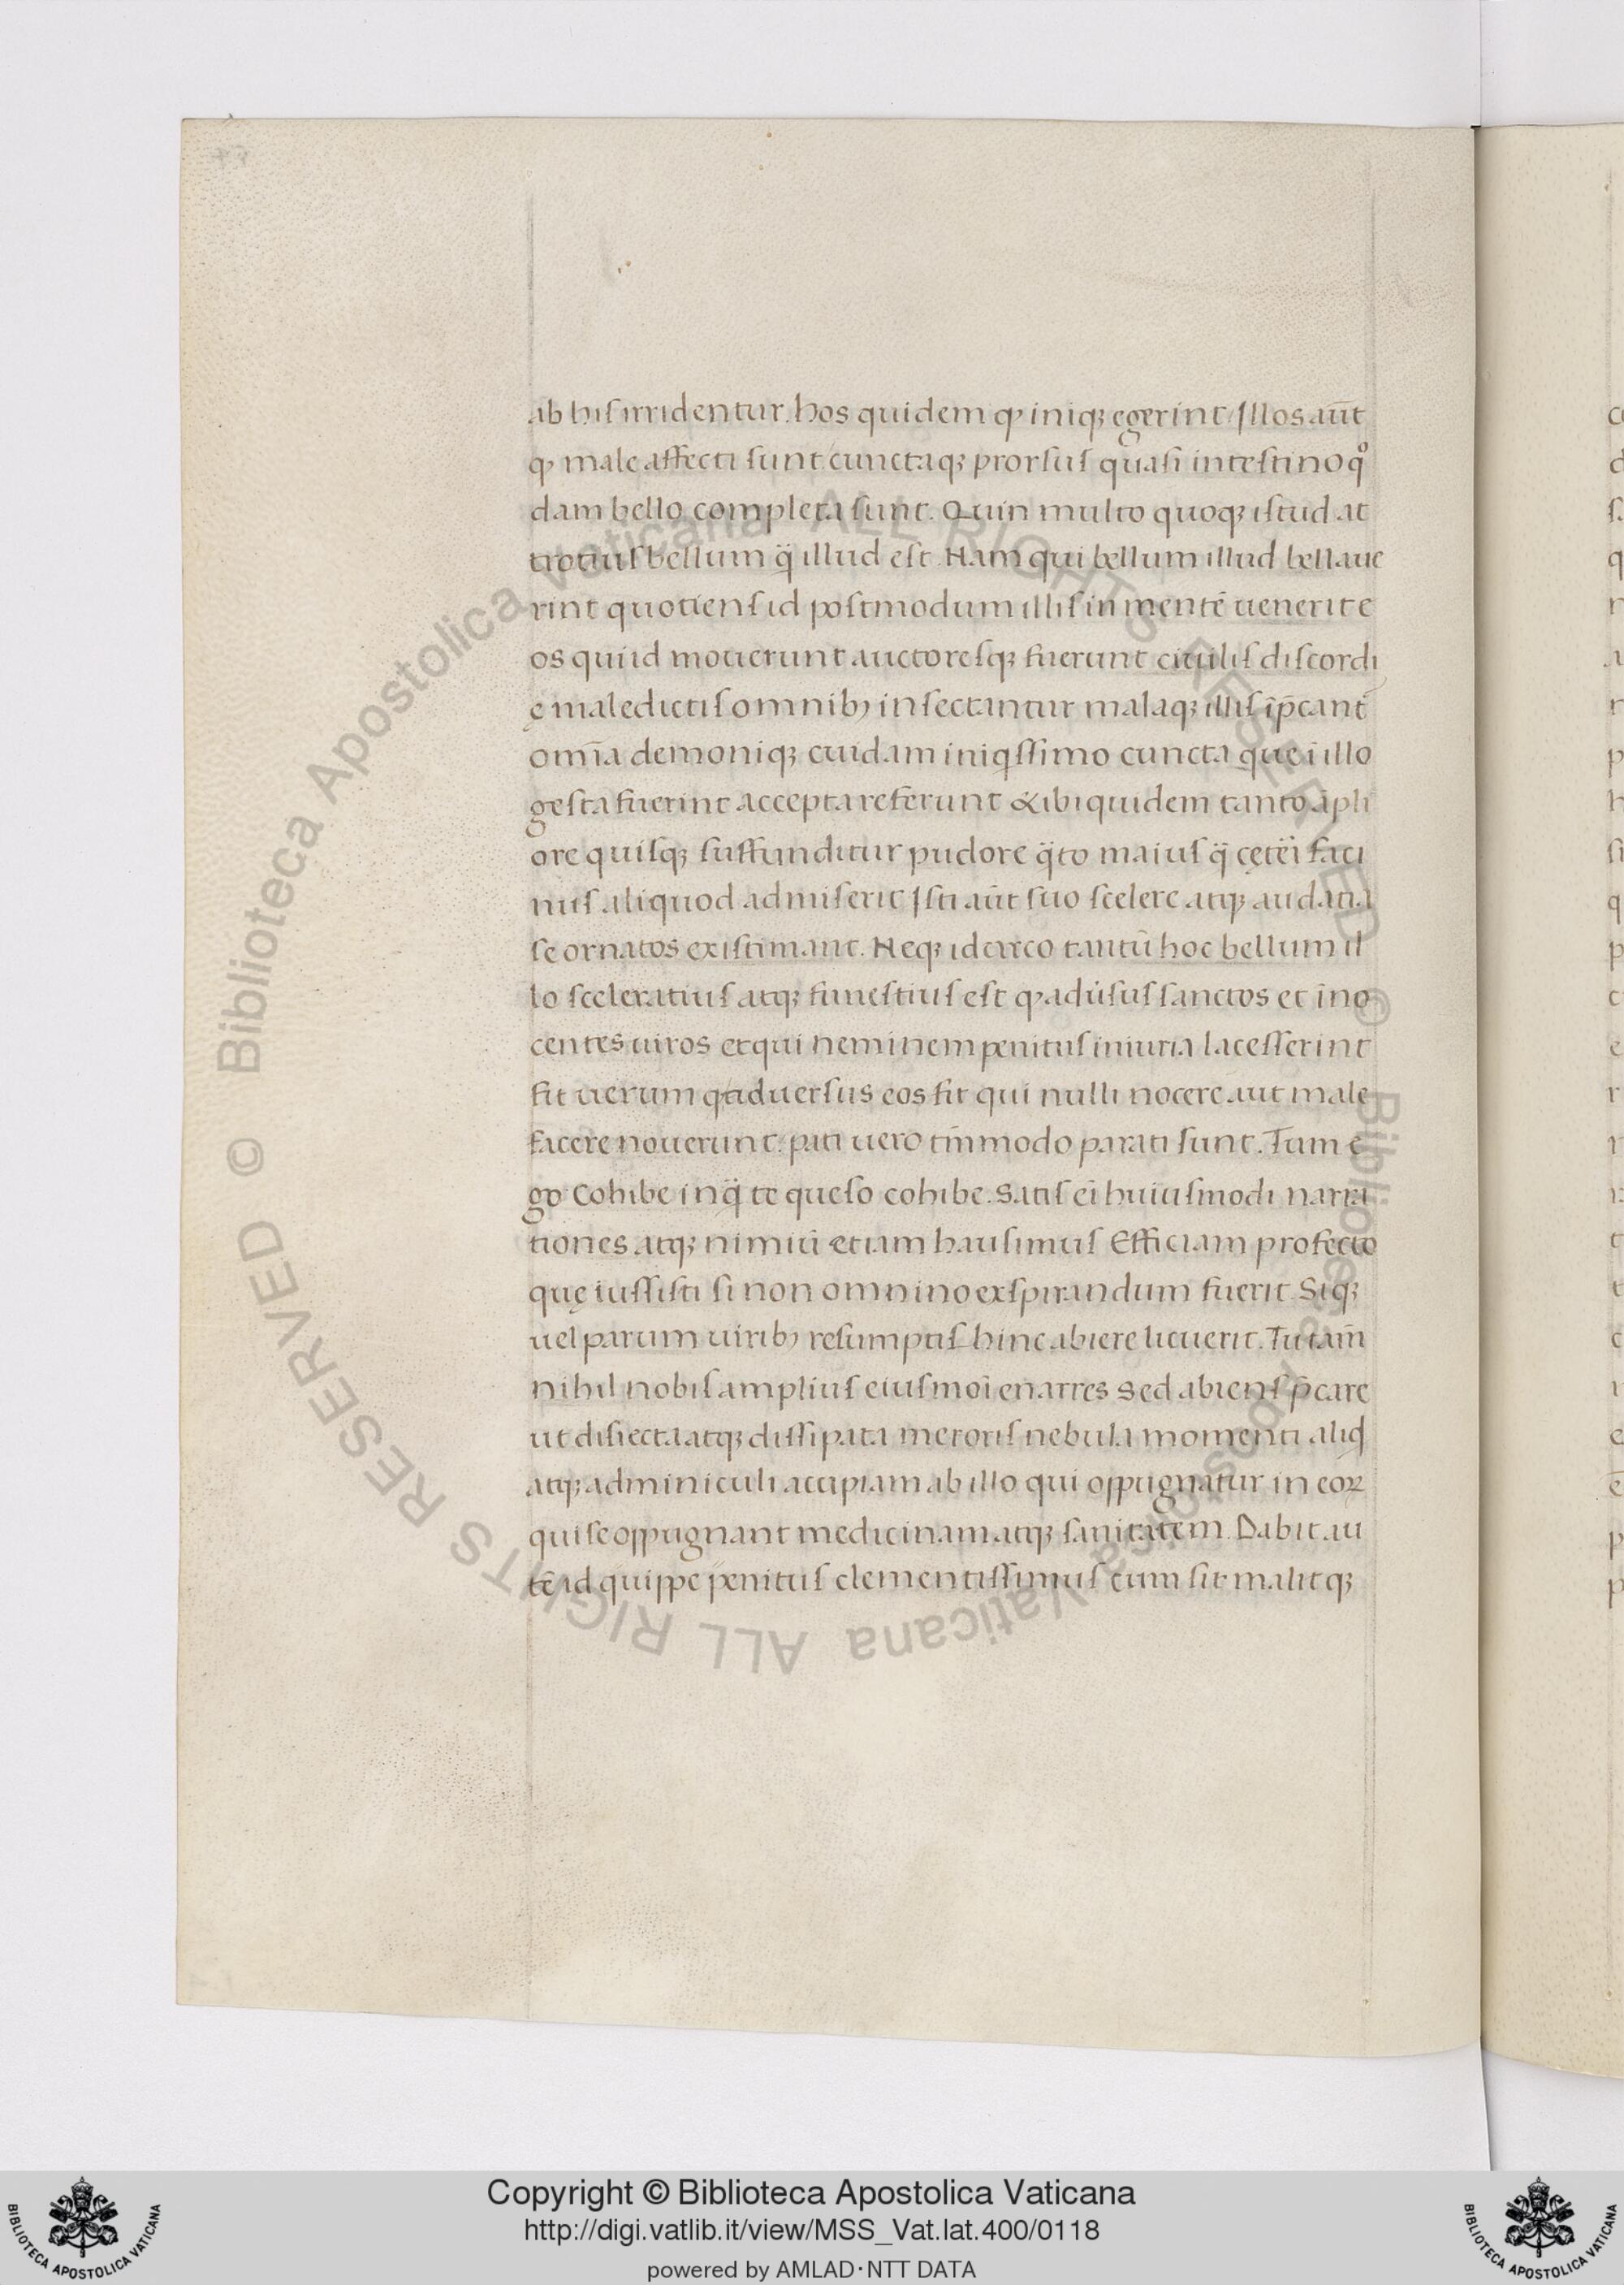 ab hiſ irridentur. hos quidem ꝙ iniqꝫ egerint. Illos aūt
ꝙ male affecti ſunt. cunctaqꝫ prorſuſ quaſi inteſtino qͦ
dam bello completa ſunt. Quin multo quoqꝫ iſtud at
trotiuſ bellum q̈ illud eſt. Nam qui bellum illud bellaue
rint quotienſ id poſtmodum illiſ in mentē uenerit e
os qui id mouerunt auctoreſqꝫ fuerunt ciuiliſ diſcordi
ę maledictiſ omnibꝫ inſectantur malaqꝫ illiſ īp̄cant̄
om̄ia demoniqꝫ cuidam iniqſſimo cuncta que ī illo
geſta fuerint accepta referunt & ibi quidem tanto āpli
ore quiſqꝫ ſuffunditur pudore q̈to maiuſ q̈ cęterī faci
nuſ aliquod admiſerit. Iſti aūt ſuo ſcelere atqꝫ audatia
ſe ornatos exiſtimant. Neqꝫ idcirco tantū hoc bellum il
lo ſceleratiuſ atqꝫ funeſtiuſ eſt ꝙ aduſuſ ſanctos et īno
centes uiros et qui neminem penituſ iniuria laceſſerint
fit uerum q aduerſus eos fit qui nulli nocere aut male
facere nouerunt. pati uero tm̄modo parati ſunt. Tum e
go Cohibe inq̈ te queſo cohibe. Satiſ ei huiuſmodi narra
tiones atqꝫ nimiū etiam hauſimuſ Efficiam profecto
quę iuſſiſti ſi non omnino exſpirandum fuerit. Siqꝫ
uel parum uiribꝫ reſumptiſ hinc abiere licuerit. Tu tam̄
nihil nobiſ ampliuſ eiuſmoī enarres Sed abienſ p̄care
ut diſiecta atqꝫ diſſipata meroriſ nebula momenti aliqd
atqꝫ adminiculi accipiam ab illo qui oppugnatur in eoꝝ
qui ſe oppugnant medicinam atqꝫ ſanitatem. Dabit au
tē id quippe penituſ clementiſſimuſ cum ſit malitqꝫ
Copyright © Biblioteca Apostolica Vaticana
http://digi.vatlib.it/view/MSS_Vat.lat.400/0118
powered by AMLAD·NTT DATA
© Biblioteca Apostolica Vaticana ALL RIGHTS RESERVED © Biblioteca Apostolica Vaticana ALL RIGHTS RESERVED
BIBLIOTECA APOSTOLICA VATICANA
BIBLIOTECA APOSTOLICA VATICANA